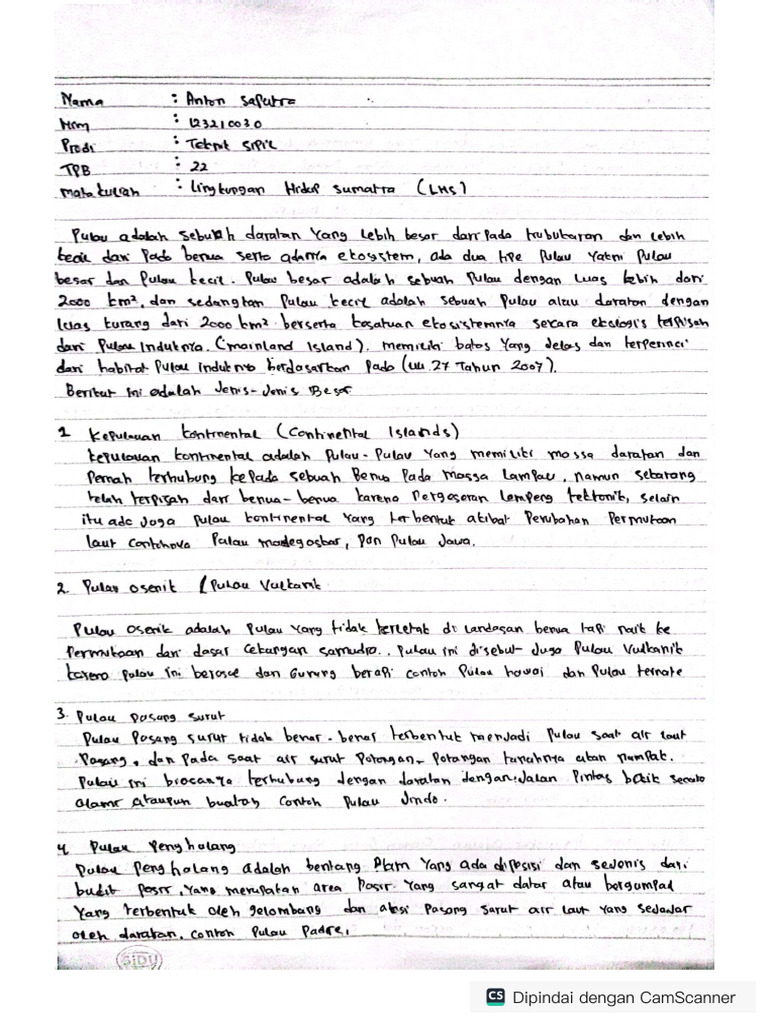 Nama : Anton Saputra
Nim : 123210030
Prodi : Teknik Sipil
TPB : 22
Mata kuliah : Lingkungan Hidup Sumatra (LHS)
Pulau adalah sebuah daratan yang lebih besar dari pada dan lebih
kecil dari pada benua serta adanya ekosystem, ada dua tipe Pulau yakni pulau
besar dan Pulau kecil. Pulau besar adalah sebuah pulau dengan luas lebih dari
2000 km², dan sedangkan Pulau kecil adalah sebuah pulau atau daratan dengan
luas kurang dari 2000 km² beserta kesatuan ekosistemnya secara ekologis terpisah
dari Pulau Induknya. (mainland Island). memiliki batas yang jelas dan terperinci
dari habitat Pulau induknya berdasarkan Pada (UU. 27 Tahun 2007).
Berikut ini adalah Jenis-Jenis Besar
1 Kepulauan kontinental (Continental Islands)
kepulauan kontinental adalah Pulau-Pulau yang memiliki massa daratan dan
Pernah terhubung kepada sebuah Benua Pada massa lampau, namun sekarang
telah terpisah dari benua-benua karena Pergeseran Lempeng tektonik, selain
itu ada Juga pulau kontinental yang terbentuk akibat Perubahan Permukaan
laut contohnya Pulau madagaskar, Dan Pulau Jawa.
2. Pulau osenik / Pulau Vulkanik
Pulau osenik adalah Pulau yang tidak terletak di landasan benua tapi naik ke
Permukaan dari dasar Cekungan samudra. Pulau ini disebut Juga Pulau Vulkanik
karena pulau ini berasal dari Gunung berapi contoh Pulau hawai dan Pulau ternate
3. Pulau pasang surut
Pulau Pasang surut tidak benar-benar terbentuk menjadi Pulau saat air laut
Pasang, dan Pada saat air surut Potongan-Potongan tanahnya akan nampak.
Pulau ini biasanya terhubung dengan daratan dengan Jalan Pintas baik secara
alami ataupun buatan Contoh Pulau Jindo.
4. Pulau Penghalang
Pulau Penghalang adalah bentang Alam yang ada diposisi dan sejenis dari
bukit pasir, yang merupakan area Pasir yang sangat datar atau bergumpal
yang terbentuk oleh gelombang dan aksi Pasang surut air laut yang sejajar
oleh daratan. contoh Pulau Padre.
SiDU
CS Dipindai dengan CamScanner